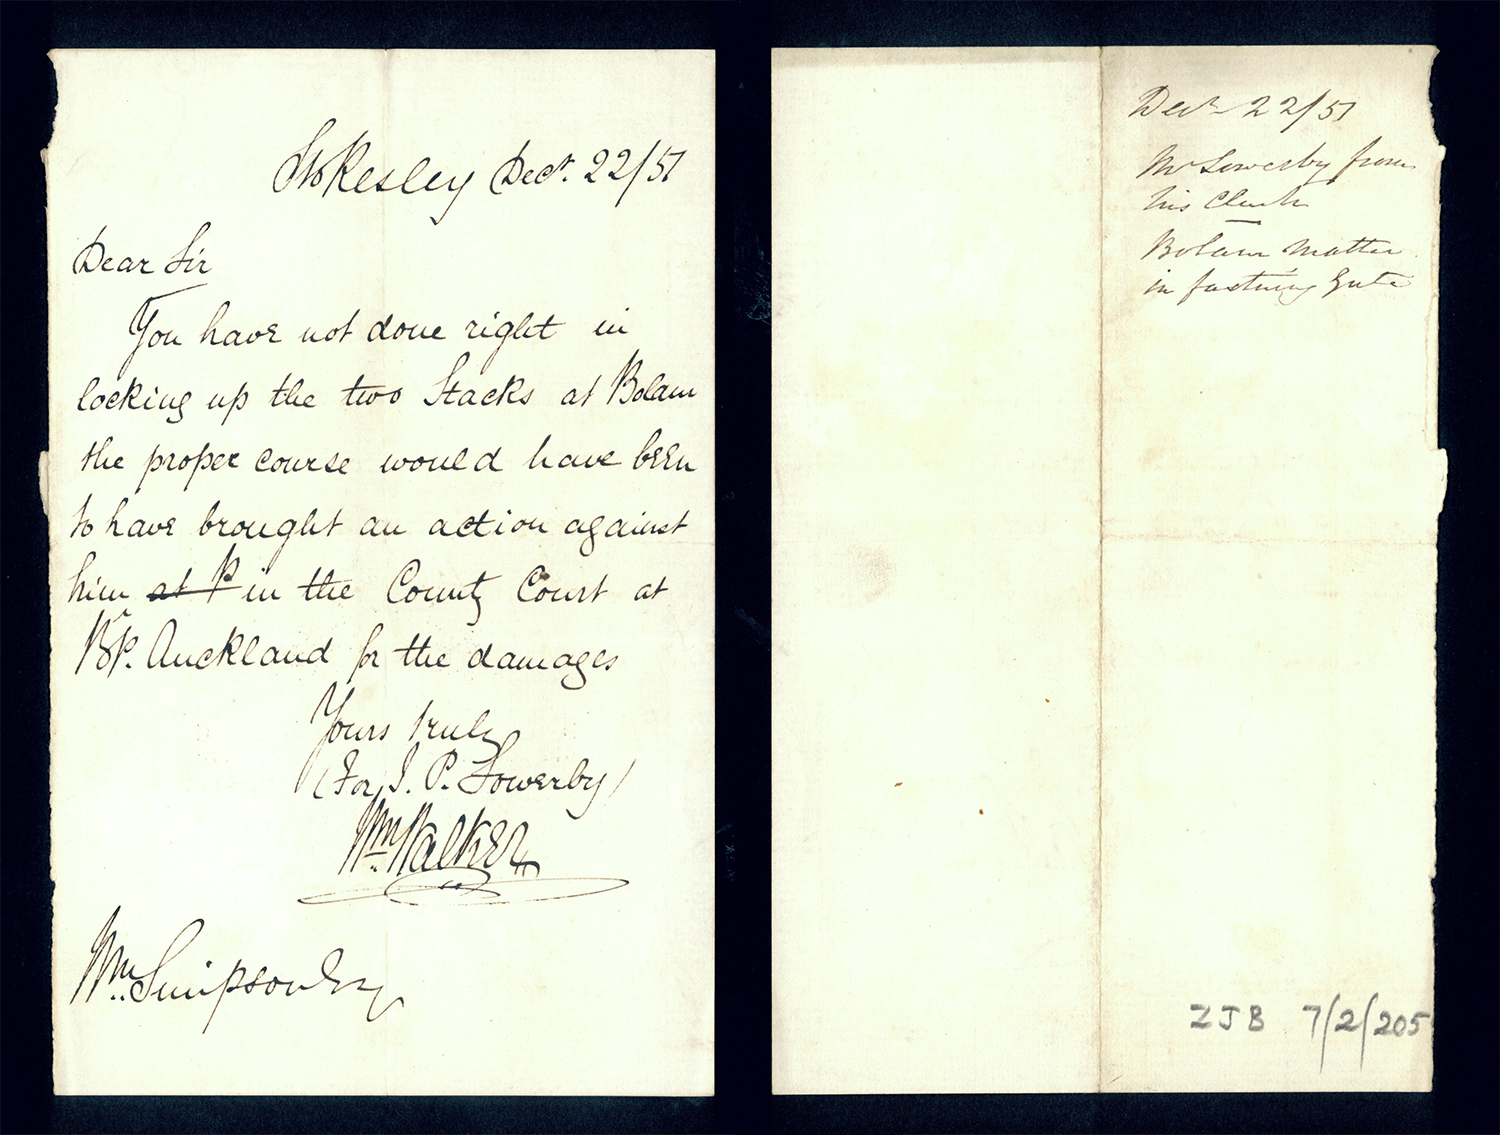 Stokesley Decr. 22/51
Dear Sir
You have not done right in
locking up the two Stacks at Bolam
the proper course would have been
to have brought an action against
him at P in the County Court at
Bp. Auckland for the damages
Yours truly
(For J. P. Sowerby)
Wm. Walker
Wm. Simpson Esq
Decr 22/51
Mr Sowerby from
his Clerk
Bolam Matter
in fastning Gate
ZJB 7/2/205